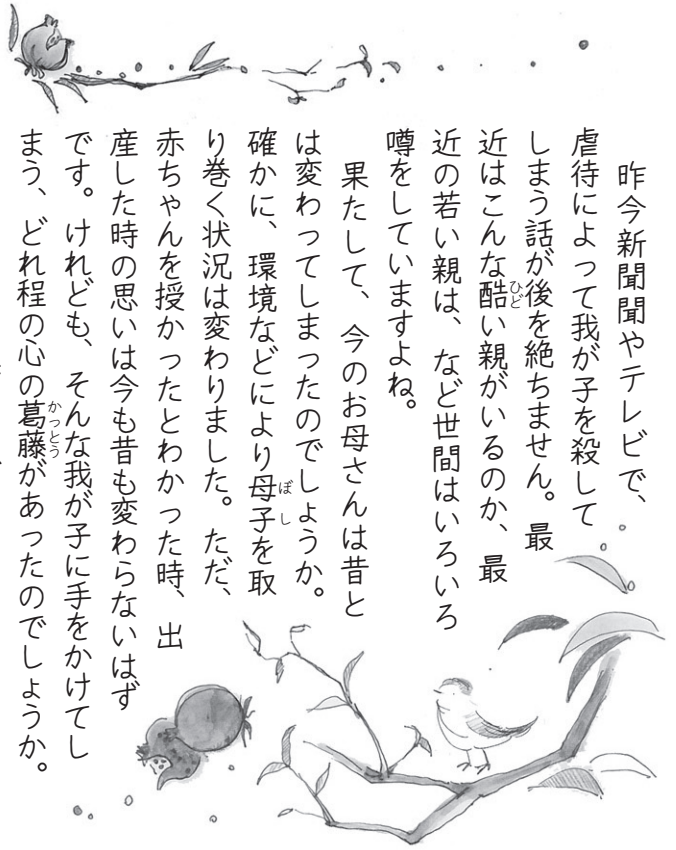 昨今新聞聞やテレビで、
虐待によって我が子を殺して
しまう話が後を絶ちません。最
近はこんな酷い親がいるのか、最
近の若い親は、など世間はいろいろ
噂をしていますよね。
果たして、今のお母さんは昔と
は変わってしまったのでしょうか。
確かに、環境などにより母子を取
り巻く状況は変わりました。ただ、
赤ちゃんを授かったとわかった時、出
産した時の思いは今も昔も変わらないはず
です。けれども、そんな我が子に手をかけてし
まう、どれ程の心の葛藤があったのでしょうか。
ひど
ぼし
かっとう